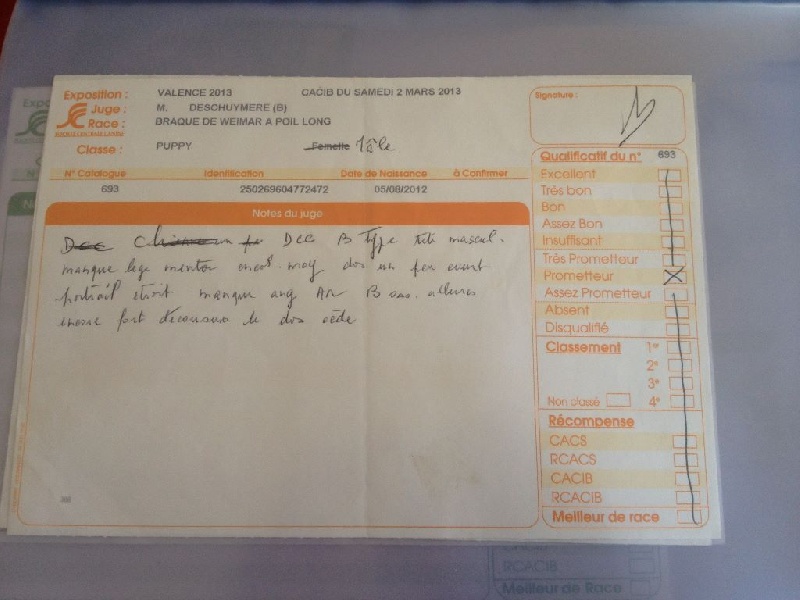 Exposition : VALENCE 2013 CACIB DU SAMEDI 2 MARS 2013
Juge : M. DESCHUYMERE (B)
Race : BRAQUE DE WEIMAR A POIL LONG
Classe : PUPPY Femelle Mâle
N° Catalogue Identification Date de Naissance à Confirmer
693 250269604772472 05/08/2012
Notes du juge
Dec B Type tete mascul.
manque dos un peu
étroit manque ang B allures
encore fort décousues le dos cède
Signature :
Qualificatif du n° 693
Excellent
Très bon
Bon
Assez Bon
Insuffisant
Très Prometteur
Prometteur X
Assez Prometteur
Absent
Disqualifié
Classement 1er
2e
3e
Non classé 4e
Récompense
CACS
RCACS
CACIB
RCACIB
Meilleur de race
RCACIB
Meilleur de Race